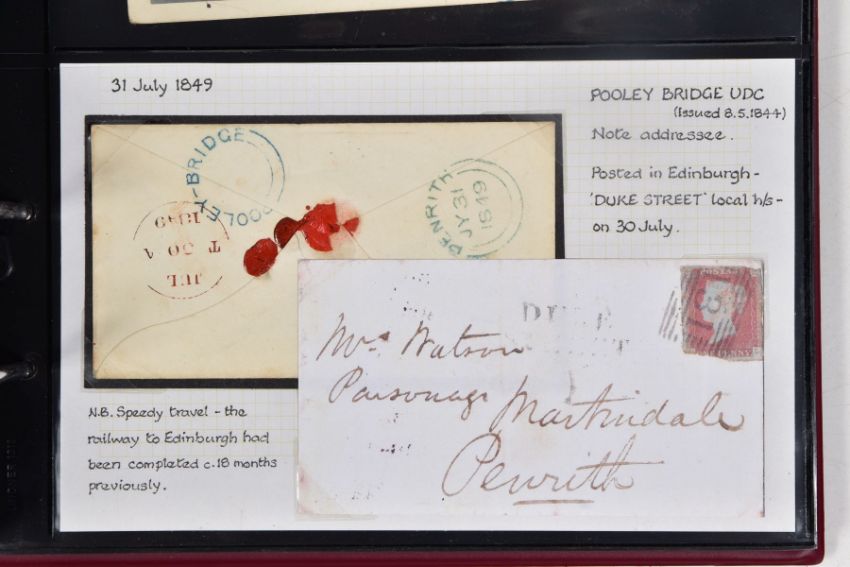 31 July 1849
POOLEY BRIDGE UDC
(Issued 8.5.1844)
Note addressee.
Posted in Edinburgh -
'DUKE STREET' local h/s -
on 30 July.
POOLEY-BRIDGE
PENRITH
JY 31
1849
JUL
T 30 A
1849
Mrs Watson
Parsonage Martindale
Penrith
POSTAGE
PENNY
N.B. Speedy travel - the
railway to Edinburgh had
been completed c.18 months
previously.